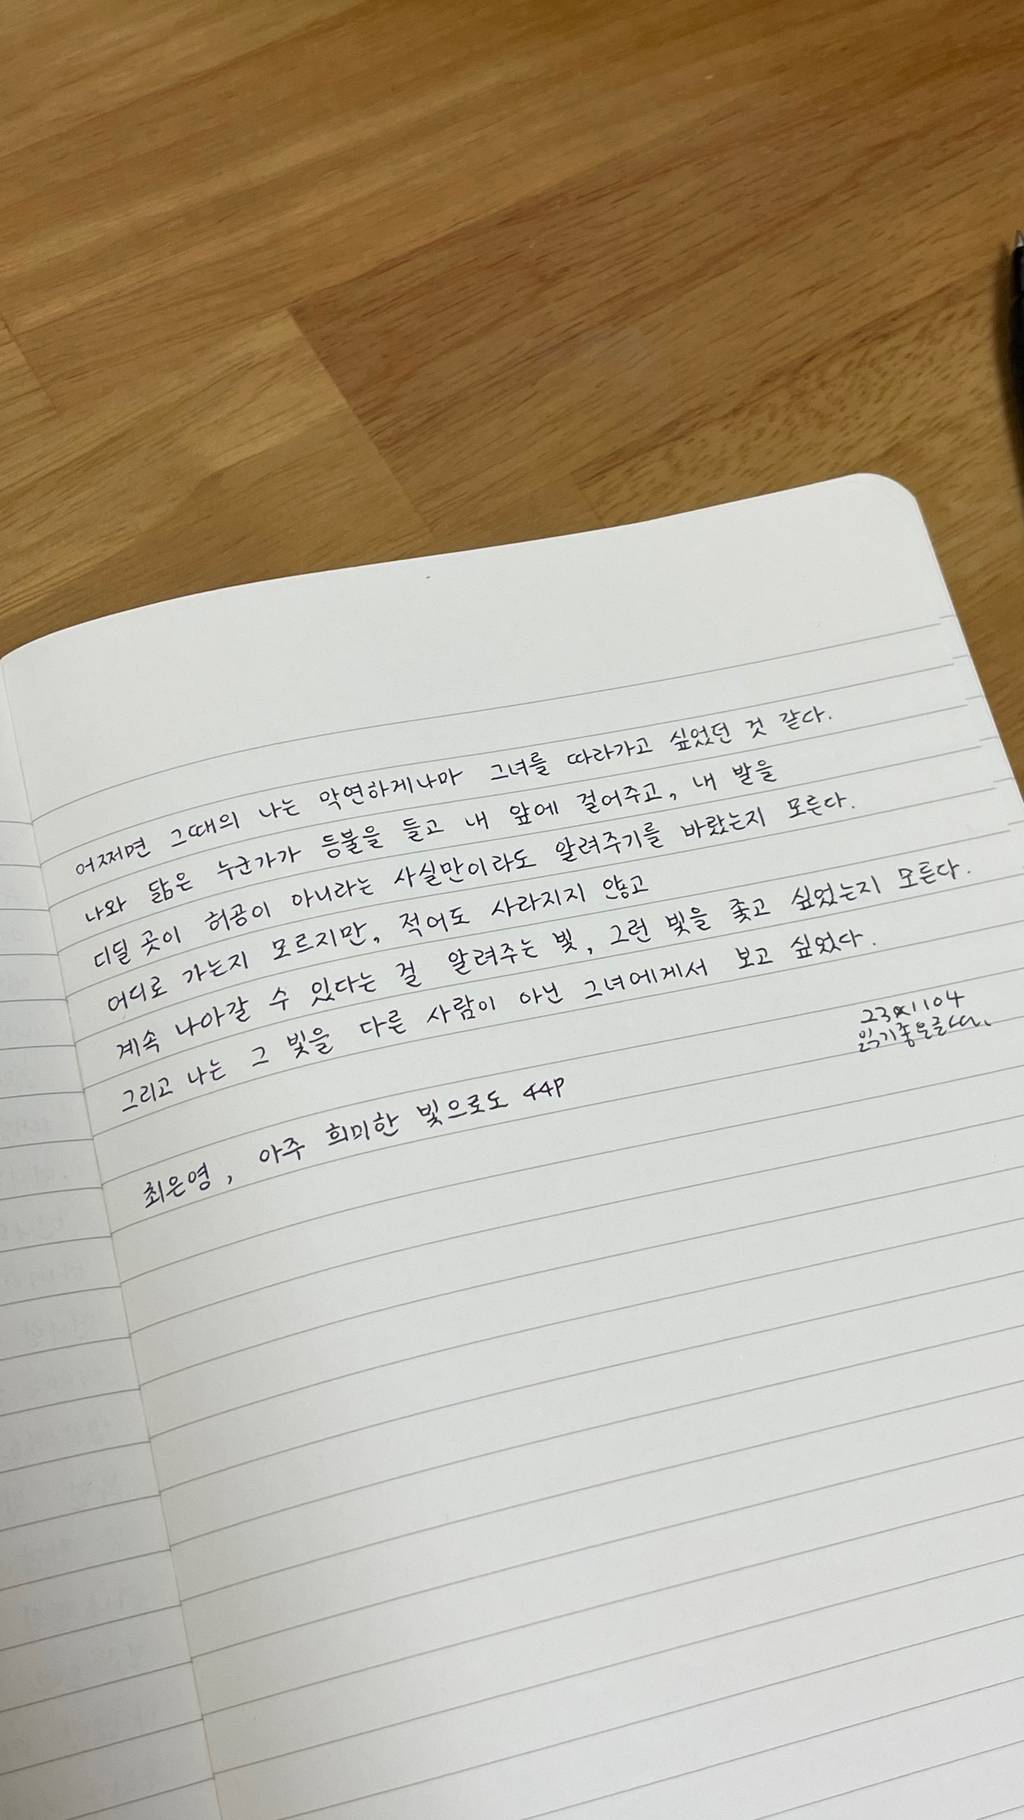 어쩌면 그때의 나는 막연하게나마 그녀를 따라가고 싶었던 것 같다.
나와 닮은 누군가가 등불을 들고 내 앞에 걸어주고, 내 발을
디딜 곳이 허공이 아니라는 사실만이라도 알려주기를 바랐는지 모른다.
어디로 가는지 모르지만, 적어도 사라지지 않고
계속 나아갈 수 있다는 걸 알려주는 빛, 그런 빛을 좇고 싶었는지 모른다.
그리고 나는 그 빛을 다른 사람이 아닌 그녀에게서 보고 싶었다.
231104
읽기좋은글
최은영, 아주 희미한 빛으로도 44P